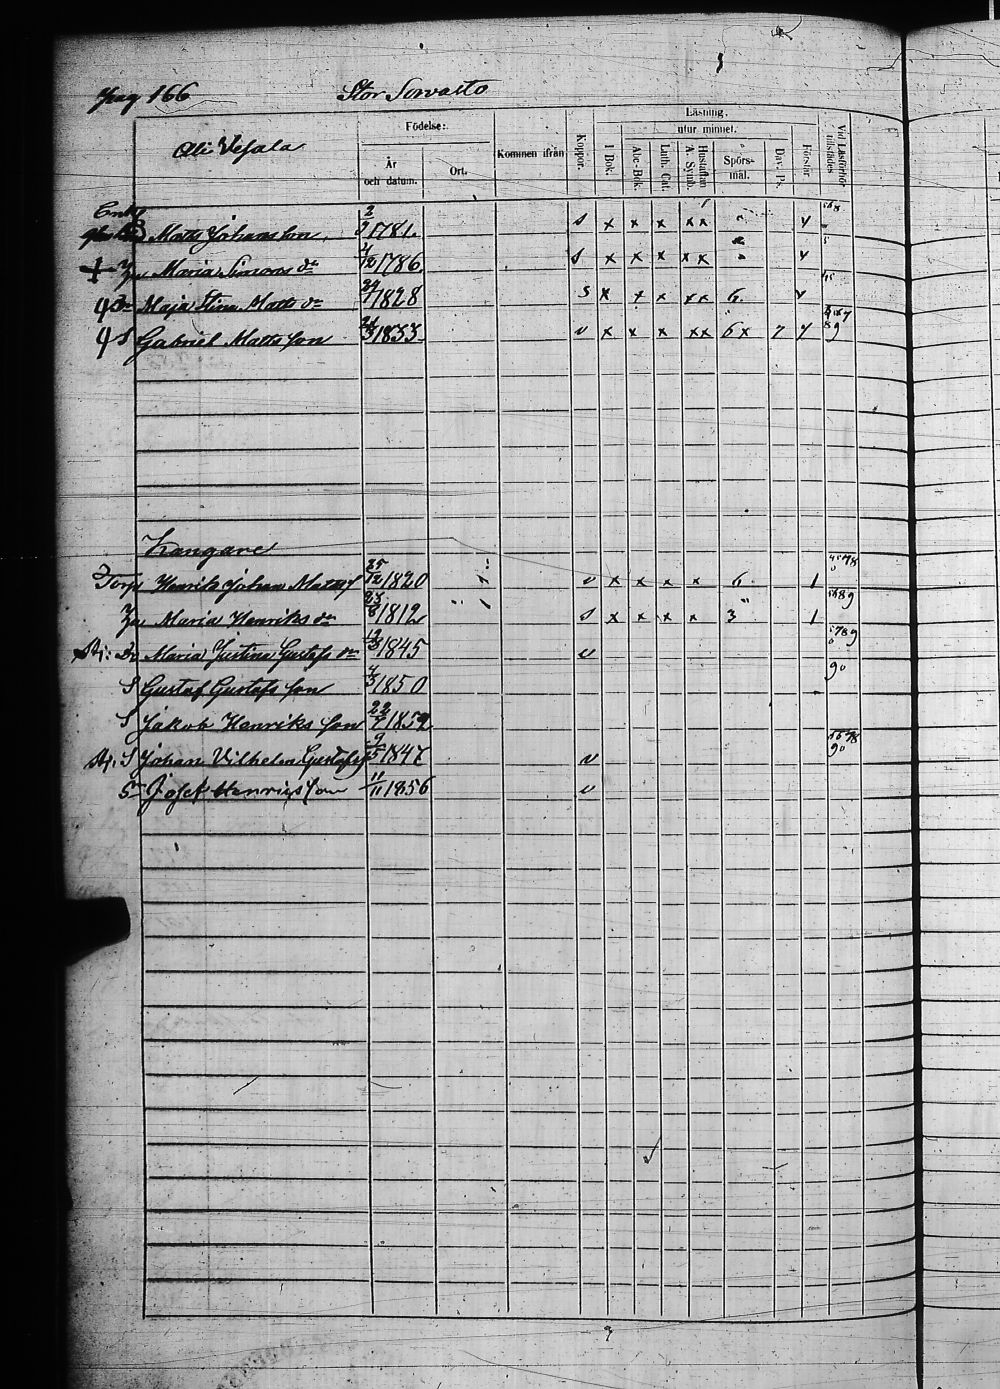 Pag 166 Stor Sorvasto
Ali Vesala
Födelse:
År och datum.
Ort.
Kommen ifrån
Koppor.
Läsning.
utur minnet.
I Bok.
Abc-Bok.
Luth. Cat.
Hustaflan A. Symb.
Spörs-mål.
Dav. Ps.
Förstår
Vid Läsförhör tillstädes
Matts Johansson 2/9 1781. s x x x x x v
Maria Simons dr 4/12 1786 s x x x x x v
Dr Maja Stina Matts dr 1828 s x x x x x 6 v
S Gabriel Matts son 24/3 1833 v x x x x x 6 x 7 v
Kangare
Torp Henrik Johan Matts 25/12 1820 v x x x x 6 1
Maria Henriks dr 23/8 1812 s x x x x 3 1
Dr Maria Justina Gustafs dr 12/3 1845 v
S Gustaf Gustafs son 4/3 1850
S Jakob Henriks son 1852
S Johan Vilhelm Gustafs 9/5 1847 v
Sn Josef Henriks son 11/11 1856 v